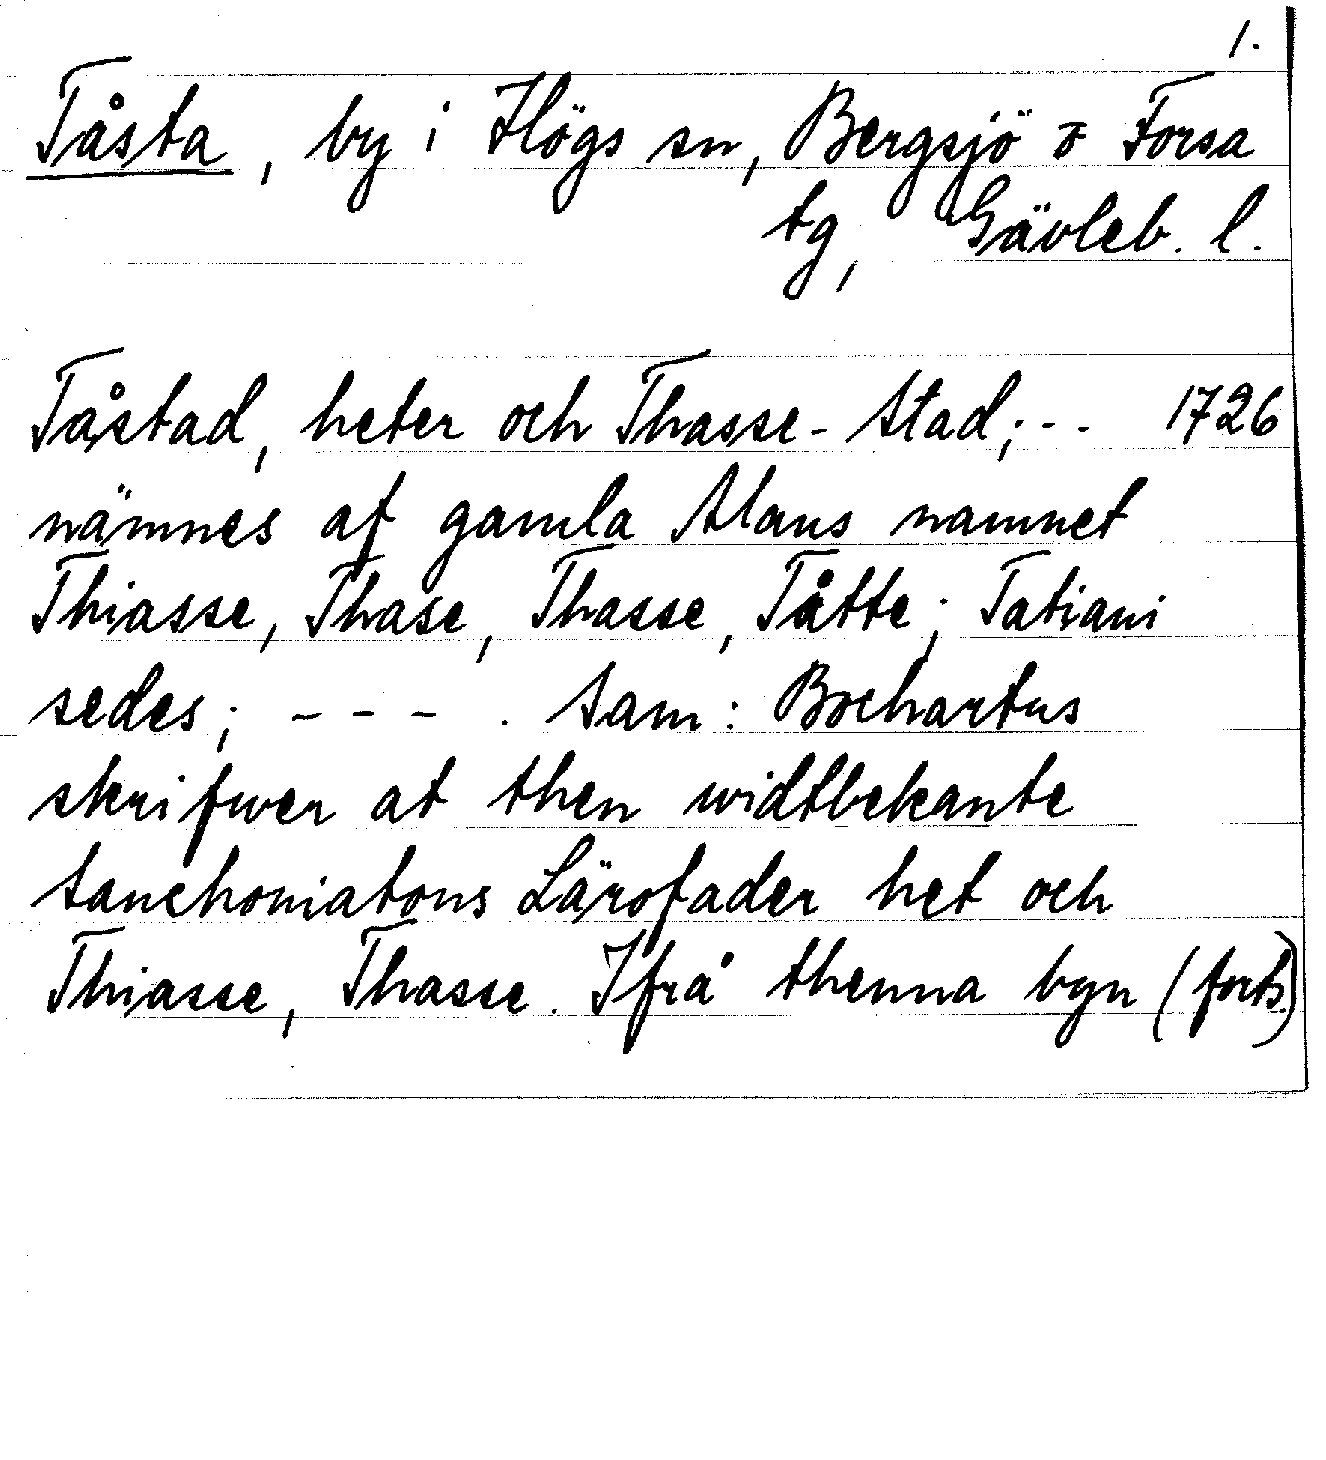 1.
Tåsta, by i Högs sn, Bergsjö o Forsa
tg, Gävleb. l.
Tåstad, heter och Thasse-Stad; -- 1726
nämnes af gamla Mans namnet
Thiasse, Thase, Thasse, Tåtte; Tatiani
sedes; --- . Sam: Bochartus
skrifwer at then widtbekante
Sanchoniatons Lärofader het och
Thiasse, Thasse. Ifrå thenna byn (forts.)